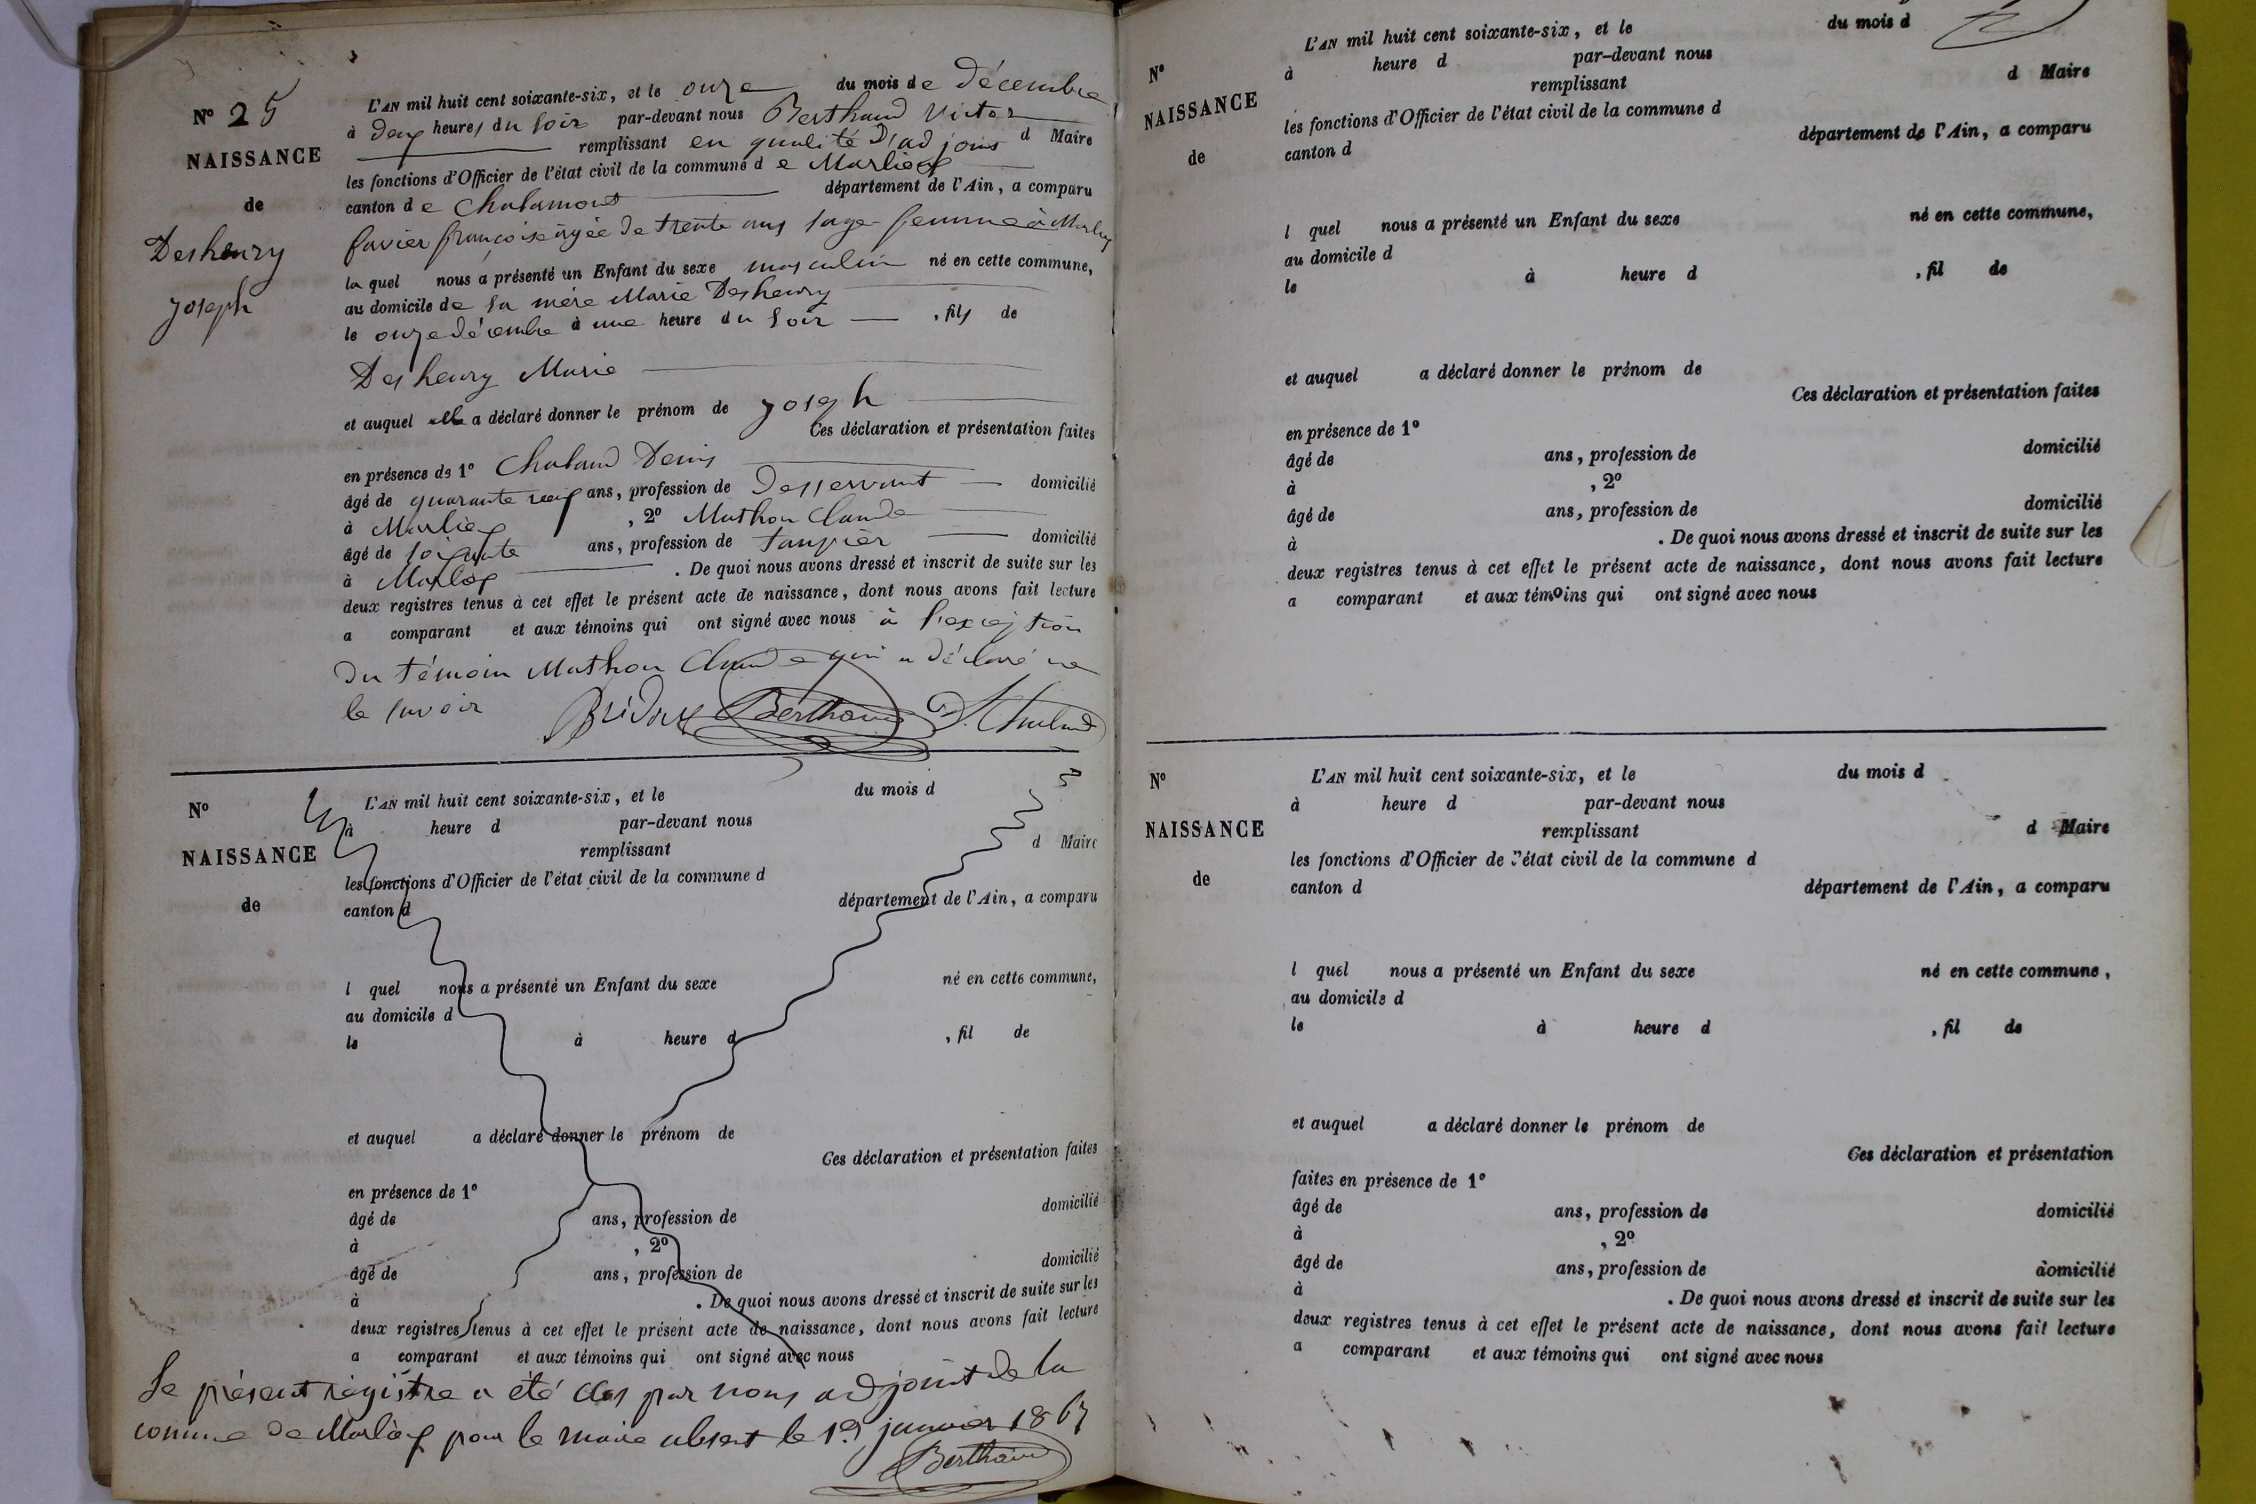 N° 25
NAISSANCE
de
Deshenry
Joseph
L'AN mil huit cent soixante-six, et le onze du mois de décembre
à deux heures du soir par-devant nous Berthaud Victor
remplissant en qualité d'adjoint d Maire
les fonctions d'Officier de l'état civil de la commune de Marlieux
canton de Chalamont département de l'Ain, a comparu
favier françoise âgée de trente ans sage femme à Marlieux
la quel nous a présenté un Enfant du sexe masculin né en cette commune,
au domicile de sa mère Marie Deshenry
le onze décembre à une heure du soir , fils de
Deshenry Marie
et auquel elle a déclaré donner le prénom de Joseph
Ces déclaration et présentation faites
en présence de 1° Chaland Denis
âgé de quarante neuf ans, profession de Desservant domicilié
à Marlieux , 2° Mathon Claude
âgé de soixante ans, profession de taupier domicilié
à Marlieux . De quoi nous avons dressé et inscrit de suite sur les
deux registres tenus à cet effet le présent acte de naissance, dont nous avons fait lecture
a comparant et aux témoins qui ont signé avec nous à l'exception
du témoin Mathon Claude qui a déclaré ne
le savoir
Berthaud
N°
NAISSANCE
de
L'AN mil huit cent soixante-six, et le du mois d
à heure d par-devant nous
remplissant d Maire
les fonctions d'Officier de l'état civil de la commune d
canton d département de l'Ain, a comparu
l quel nous a présenté un Enfant du sexe né en cette commune,
au domicile d
le à heure d , fil de
et auquel a déclaré donner le prénom de
Ces déclaration et présentation faites
en présence de 1°
âgé de ans, profession de domicilié
à , 2°
âgé de ans, profession de domicilié
à . De quoi nous avons dressé et inscrit de suite sur les
deux registres tenus à cet effet le présent acte de naissance, dont nous avons fait lecture
a comparant et aux témoins qui ont signé avec nous
Le présent registre a été clos par nous adjoint de la
commune de Marlieux pour le maire absent le 1er janvier 1867
Berthaud
N°
NAISSANCE
de
L'AN mil huit cent soixante-six, et le du mois d
à heure d par-devant nous
remplissant d Maire
les fonctions d'Officier de l'état civil de la commune d
canton d département de l'Ain, a comparu
l quel nous a présenté un Enfant du sexe né en cette commune,
au domicile d
le à heure d , fil de
et auquel a déclaré donner le prénom de
Ces déclaration et présentation faites
en présence de 1°
âgé de ans, profession de domicilié
à , 2°
âgé de ans, profession de domicilié
à . De quoi nous avons dressé et inscrit de suite sur les
deux registres tenus à cet effet le présent acte de naissance, dont nous avons fait lecture
a comparant et aux témoins qui ont signé avec nous
N°
NAISSANCE
de
L'AN mil huit cent soixante-six, et le du mois d
à heure d par-devant nous
remplissant d Maire
les fonctions d'Officier de l'état civil de la commune d
canton d département de l'Ain, a comparu
l quel nous a présenté un Enfant du sexe né en cette commune,
au domicile d
le à heure d , fil de
et auquel a déclaré donner le prénom de
Ces déclaration et présentation
faites en présence de 1°
âgé de ans, profession de domicilié
à , 2°
âgé de ans, profession de domicilié
à . De quoi nous avons dressé et inscrit de suite sur les
deux registres tenus à cet effet le présent acte de naissance, dont nous avons fait lecture
a comparant et aux témoins qui ont signé avec nous